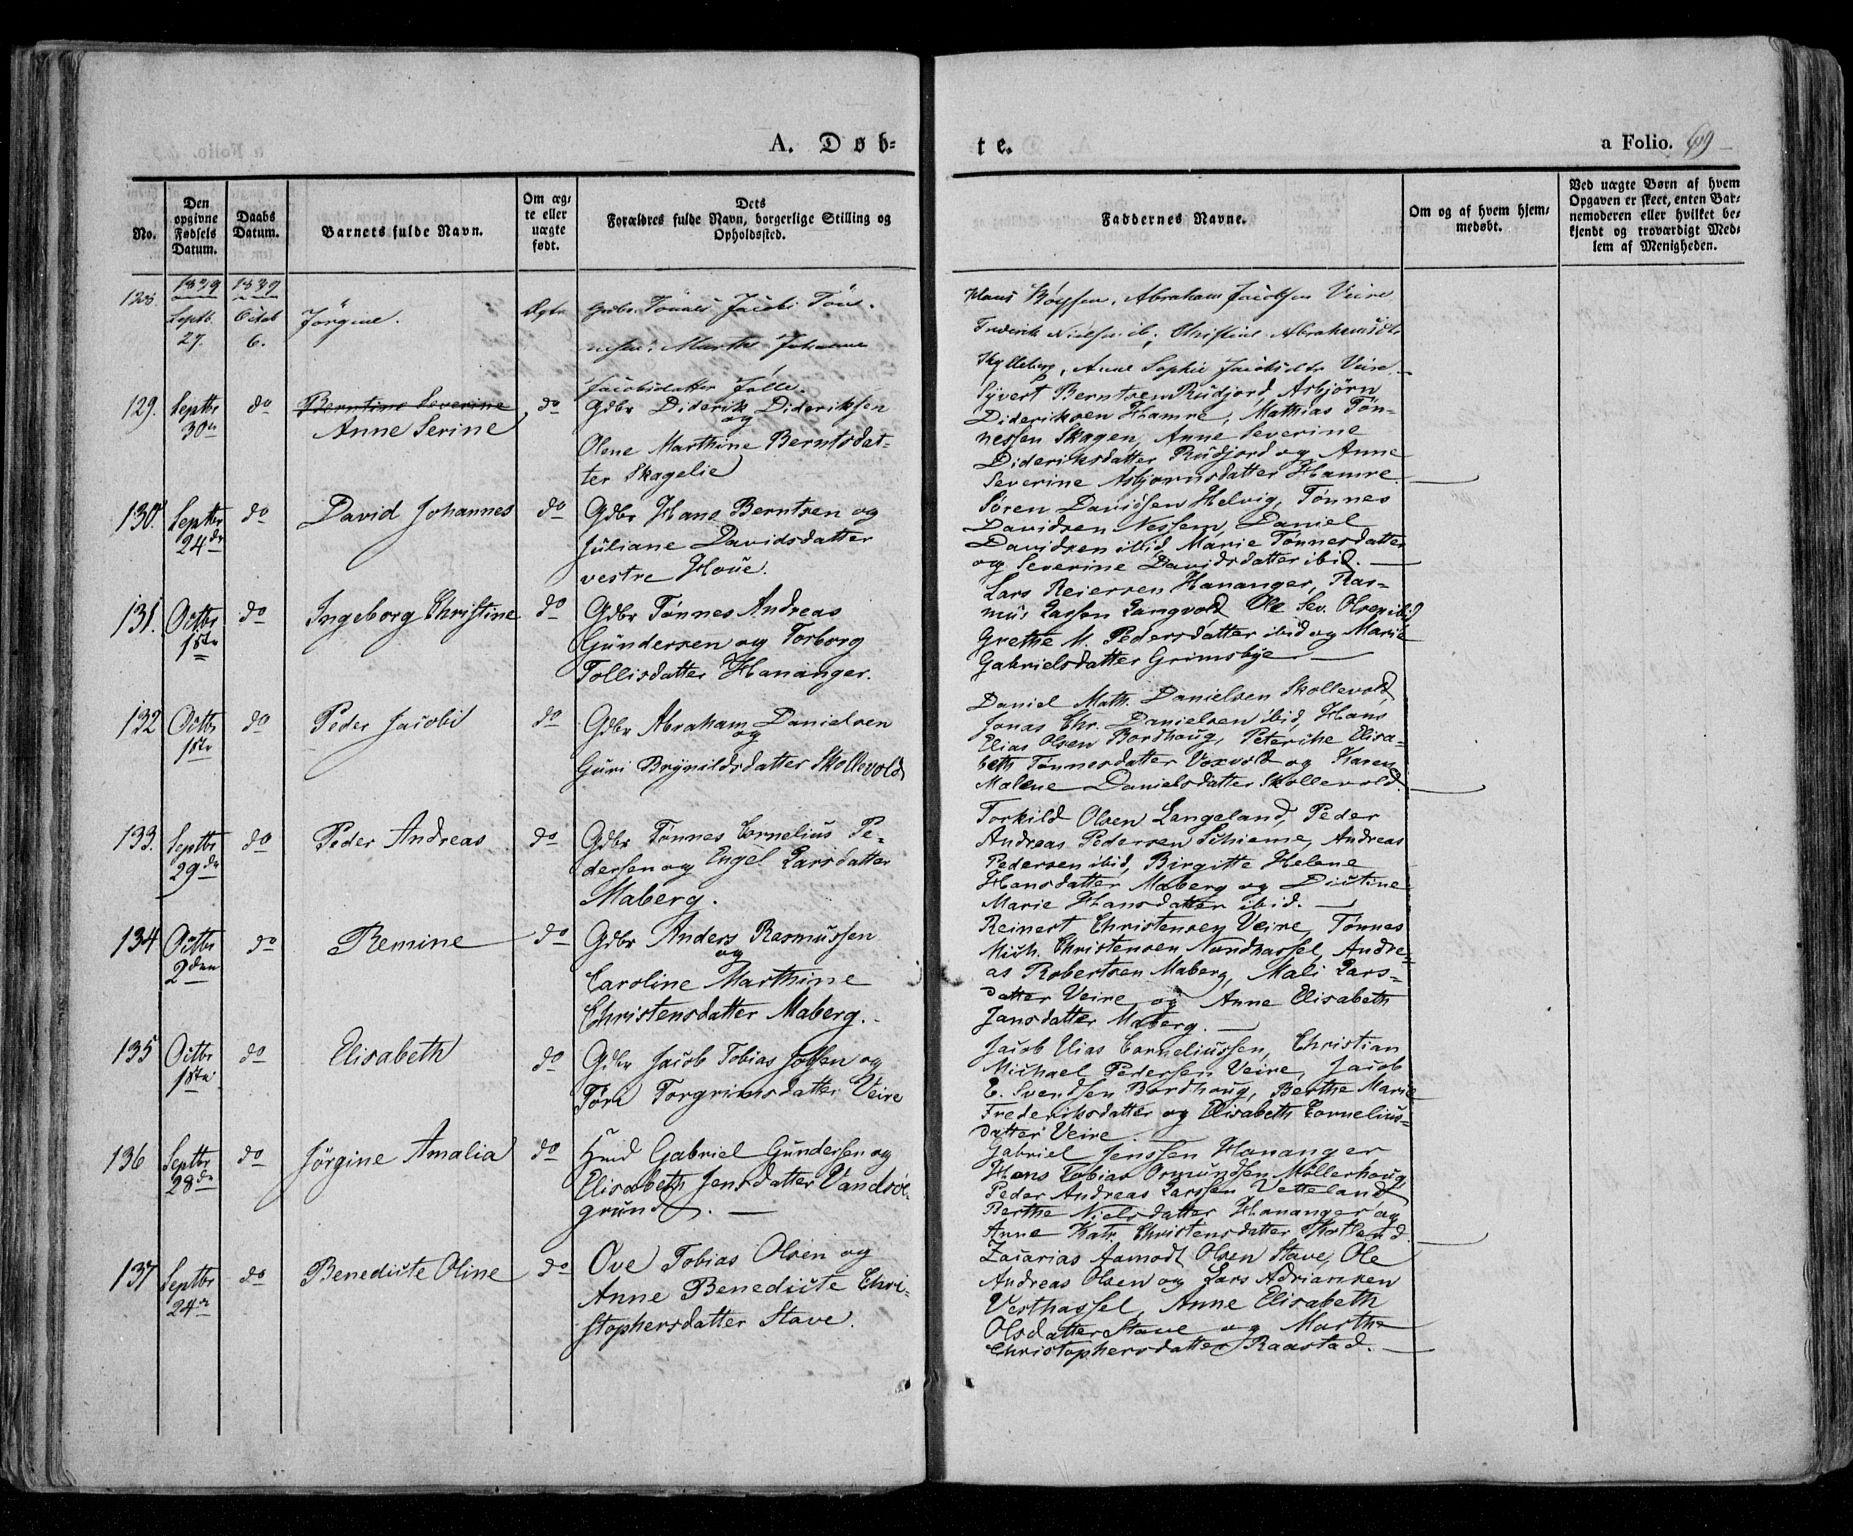 A. Døb-
te.
a Folio. 69
No.
Den opgivne Fødsels Datum.
Daabs Datum.
Barnets fulde Navn.
Om ægte eller uægte født.
Dets
Forældres fulde Navn, borgerlige Stilling og
Opholdssted.
Faddernes Navne.
Om og af hvem hjem-
medøbt.
Ved uægte Børn af hvem
Opgaven er skeet, enten Bar-
nemoderen eller hvilket be-
kjendt og troværdigt Med-
lem af Menigheden.
1839 1839
Septb. 27. Octob 6. Jörgine. Ægte Gdbr Jacob Tön-
nesen. Marthe Johanne
Jacobsdatter
Abraham Jacobsen Veire
Frederik Nielsen ib, Christine Abrahamsdtr
Anne Sophie Jacobsdtr Veire
129. Septbr 30te do Berntine Severine
Anne Serine do Gdbr Diderik Dideriksen
og
Olene Marthine Berntsdat-
ter Skagelie
Syvert Berntsen Rudjord, Asbjörn
Dideriksen Hamre, Mathias Tøn-
nessen Skagen, Anne Severine
Dideriksdatter Rudjord og Anne
Severine Asbjornsdatter Hamre.
130. Septbr 24de do David Johannes do Gdbr Hans Berntsen og
Juliane Davidsdatter
vestre Houe.
Søren Davidsen Helvig, Tønnes
Davidsen Nessem, Daniel
Davidsen ibid, Marie Tønnesdatter
og Severine Davidsdatter ibid.
131. Octbr 1ste do Ingeborg Christine do Gdbr Tønnes Andreas
Gundersen og Torborg
Tollisdatter Hananger.
Lars Reiersen Hananger, Ras-
mus Larsen Langvold, Ole Sev. Olsen ibid
Grethe M. Pedersdatter ibid og Marie
Gabrielsdatter Grimsbye
132 Octbr 1ste do Peder Jacobi do Gdbr Abraham Danielsen
og
Guri Brynildsdatter Skollevold
Daniel Math. Danielsen Skollevold,
Jonas Chr. Danielsen ibid, Hans
Elias Olsen Bordhoug, Peterike Elisa-
beth Tønnesdatter Voxvold og Karen
Malene Danielsdatter Skollevold.
133. Septbr 29de do Peder Andreas do Gdbr Tønnes Cornelius Pe-
dersen og Engel Larsdatter
Maberg.
Torkild Olsen Langeland, Peder
Andreas Pedersen Schieme, Andreas
Pedersen ibid, Birgitte Helene
Hansdatter Maberg og Dictine
Marie Hansdatter ibid.
134 Octbr 2den do Remine do Gdbr Anders Rasmussen
og
Caroline Marthine
Christensdatter Maberg.
Reinert Christensen Veire, Tønnes
Mich. Christensen Nordhassel, Andre-
as Robertsen Maberg, Mali Lars-
datter Veire og Anne Elisabeth
Jansdatter Maberg.
135 Octbr 1ste do Elisabeth do Gdbr Jacob Tobias Jobsen og
Tøra Torgrimsdatter Veire
Jacob Elias Corneliussen, Christian
Michael Pedersen Veire, Jacob
E. Svendsen Bordhoug, Berthe Marie
Frederiksdatter og Elisabeth Cornelius-
datter Veire.
136 Septbr 28de do Jörgine Amalia do Hmd Gabriel Gundersen og
Elisabeth Jensdatter Vandsøe-
grund.
Gabriel Jenssen Hananger,
Hans Tobias Osmundsen Møllerhoug,
Peder Andreas Larssen Vetteland
Berthe Nielsdatter Hananger og
Anne Katr. Christensdatter
137 Septbr 24de do Benedicte Oline do Ove Tobias Olsen og
Anne Benedicte Chri-
stophersdatter Stave.
Zacarias Aamodt Olsen Stave, Ole
Andreas Olsen og Lars Adriansen
Vesthassel, Anne Elisabeth
Olsdatter Stave og Marthe
Christophersdatter Raastad.